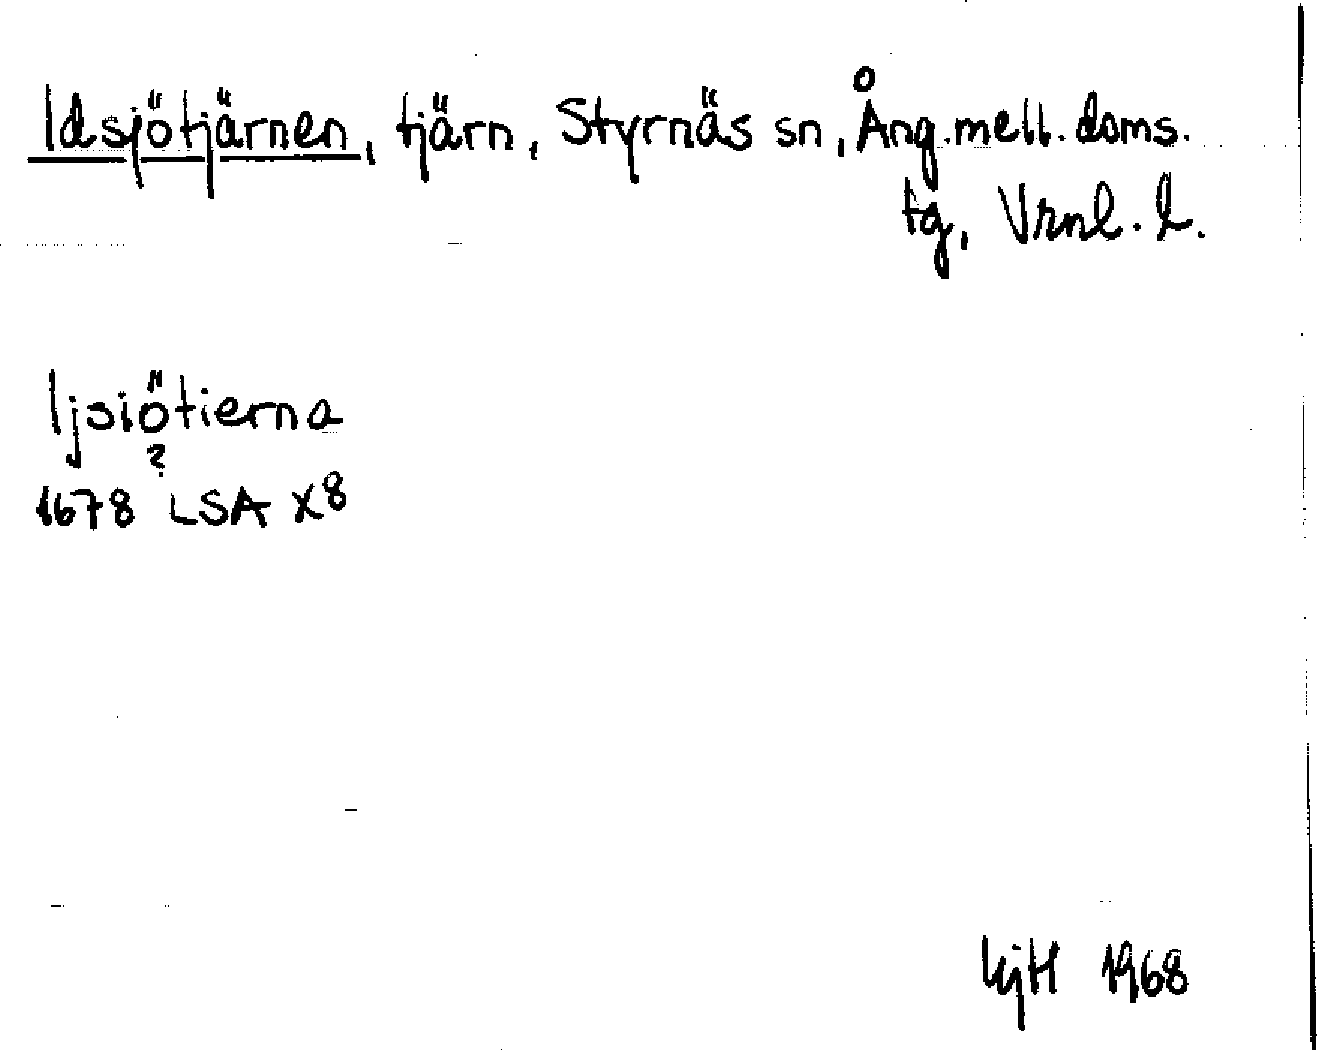 Idsjötjärnen, tjärn, Styrnäs sn, Ång. mell. doms.
tg, Vrnl. l.
Ijsiötierna
?
1678 LSA X8
KjH 1968